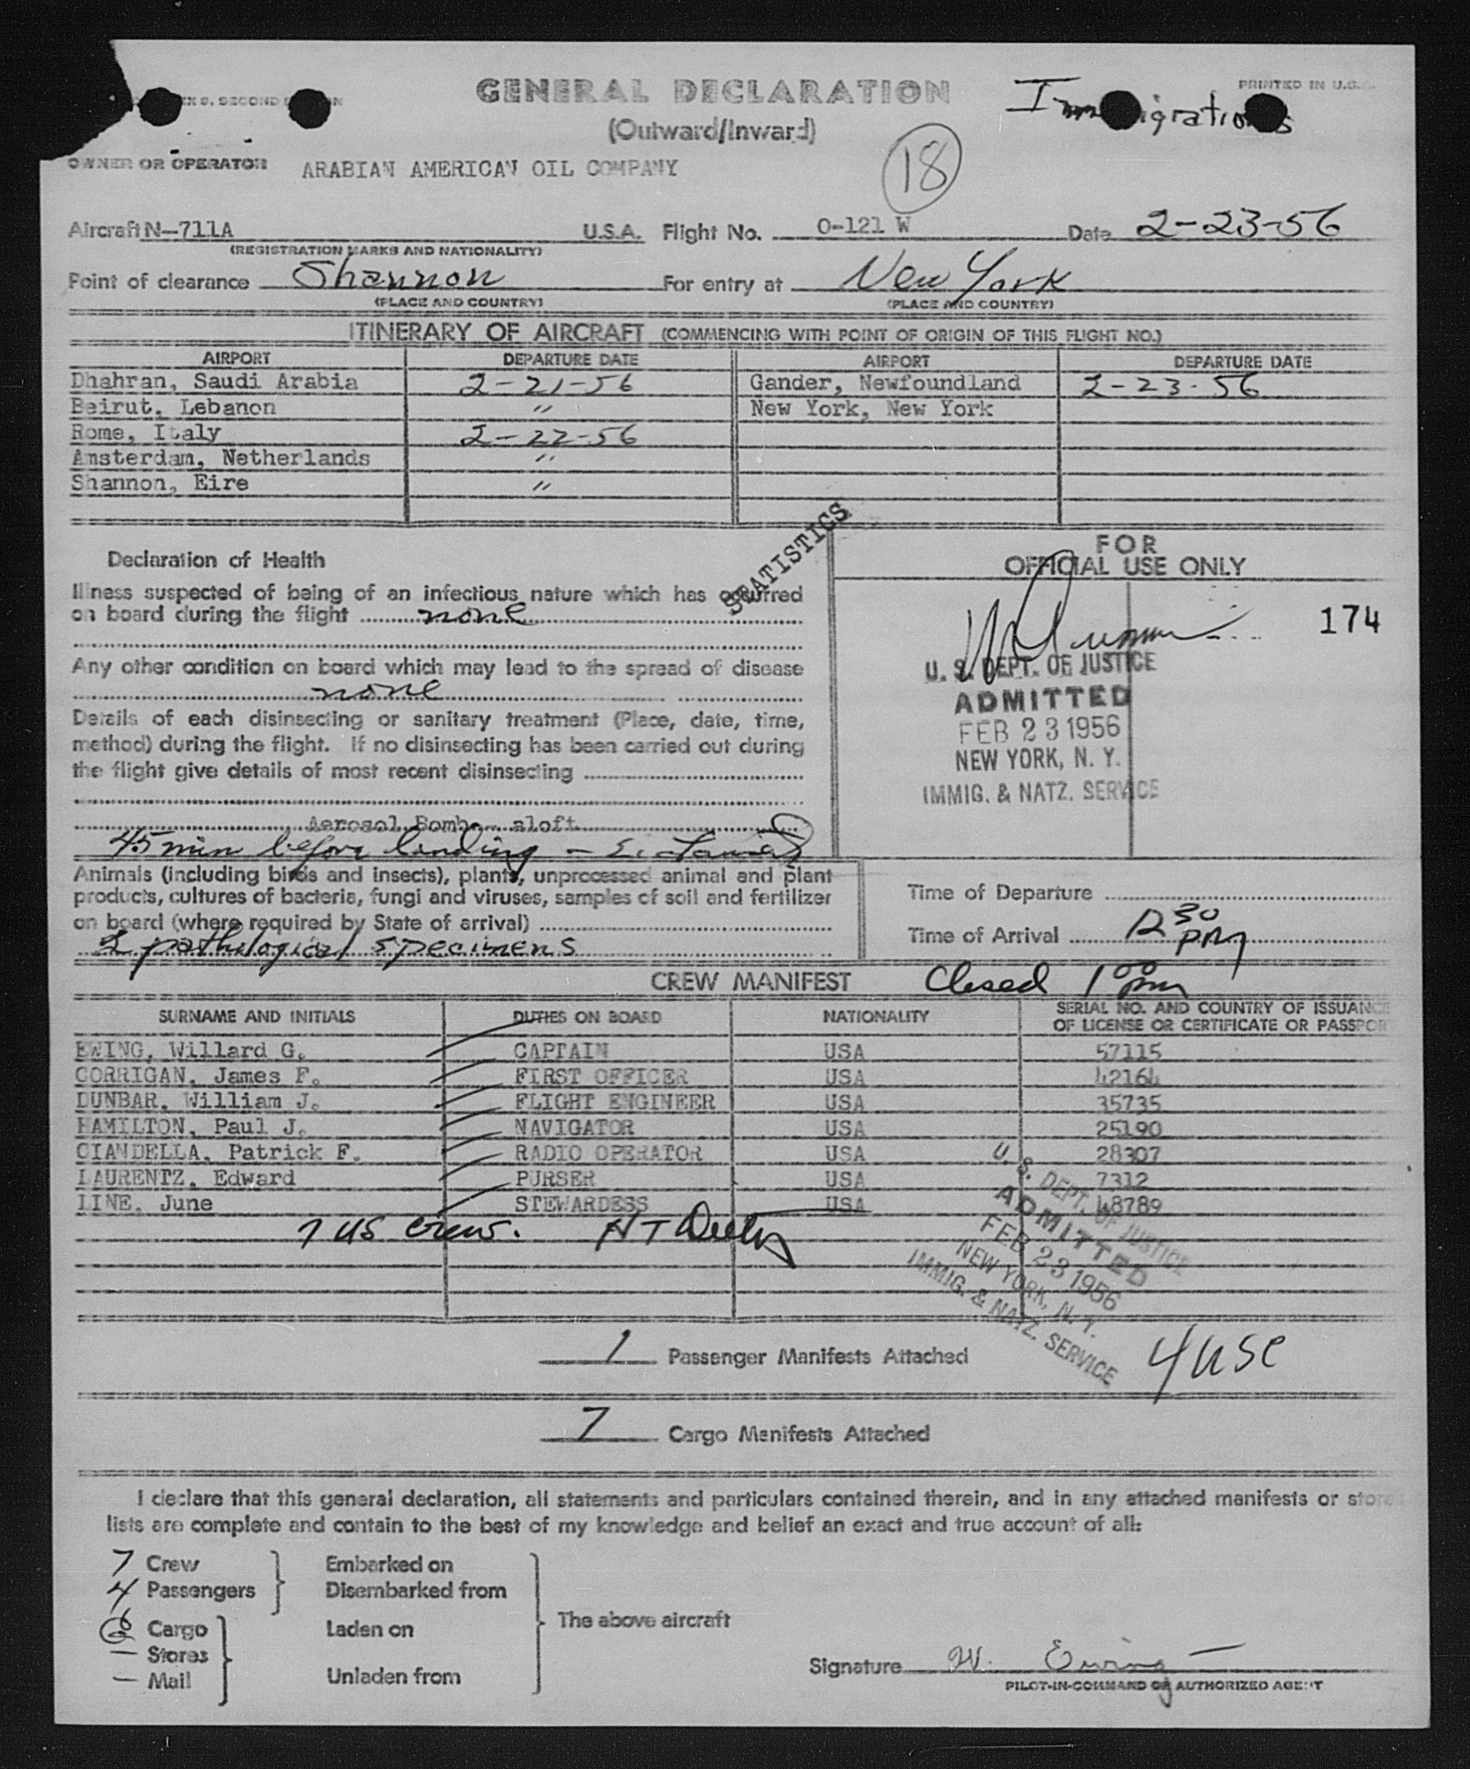 GENERAL DECLARATION
(Outward/Inward)
Immigrations
PRINTED IN U.S.
18
OWNER OR OPERATOR ARABIAN AMERICAN OIL COMPANY
Aircraft N-711A U.S.A. Flight No. O-121 W Date 2-23-56
(REGISTRATION MARKS AND NATIONALITY)
Point of clearance Shannon For entry at New York
(PLACE AND COUNTRY) (PLACE AND COUNTRY)
ITINERARY OF AIRCRAFT (COMMENCING WITH POINT OF ORIGIN OF THIS FLIGHT NO.)
AIRPORT DEPARTURE DATE AIRPORT DEPARTURE DATE
Dhahran, Saudi Arabia 2-21-56 Gander, Newfoundland 2-23-56
Beirut, Lebanon " New York, New York
Rome, Italy 2-22-56
Amsterdam, Netherlands "
Shannon, Eire "
STATISTICS
Declaration of Health
Illness suspected of being of an infectious nature which has occurred
on board during the flight none
Any other condition on board which may lead to the spread of disease
none
Details of each disinsecting or sanitary treatment (Place, date, time,
method) during the flight. If no disinsecting has been carried out during
the flight give details of most recent disinsecting
Aerosol Bomb - aloft
45 min before landing -
Animals (including birds and insects), plants, unprocessed animal and plant
products, cultures of bacteria, fungi and viruses, samples of soil and fertilizer
on board (where required by State of arrival)
2 pathological specimens
FOR
OFFICIAL USE ONLY
174
U. S. DEPT. OF JUSTICE
ADMITTED
FEB 23 1956
NEW YORK, N. Y.
IMMIG. & NATZ. SERVICE
Time of Departure
Time of Arrival 12 30 PM
CREW MANIFEST Closed 1 00 pm
SURNAME AND INITIALS DUTIES ON BOARD NATIONALITY SERIAL NO. AND COUNTRY OF ISSUANCE
OF LICENSE OR CERTIFICATE OR PASSPOR
EWING, Willard G. CAPTAIN USA 57115
CORRIGAN, James F. FIRST OFFICER USA 42164
DUNBAR, William J. FLIGHT ENGINEER USA 35735
HAMILTON, Paul J. NAVIGATOR USA 25190
CIANDELLA, Patrick F. RADIO OPERATOR USA 28307
LAURENTZ, Edward PURSER USA 7312
LINE, June STEWARDESS USA 48789
7 US crew.
U. S. DEPT. OF JUSTICE
ADMITTED
FEB 23 1956
NEW YORK, N. Y.
IMMIG. & NATZ. SERVICE
1 Passenger Manifests Attached
4 USC
7 Cargo Manifests Attached
I declare that this general declaration, all statements and particulars contained therein, and in any attached manifests or stores
lists are complete and contain to the best of my knowledge and belief an exact and true account of all:
7 Crew Embarked on
4 Passengers Disembarked from
The above aircraft
Cargo Laden on
- Stores
- Mail Unladen from
Signature W. Ewing
PILOT-IN-COMMAND OR AUTHORIZED AGENT